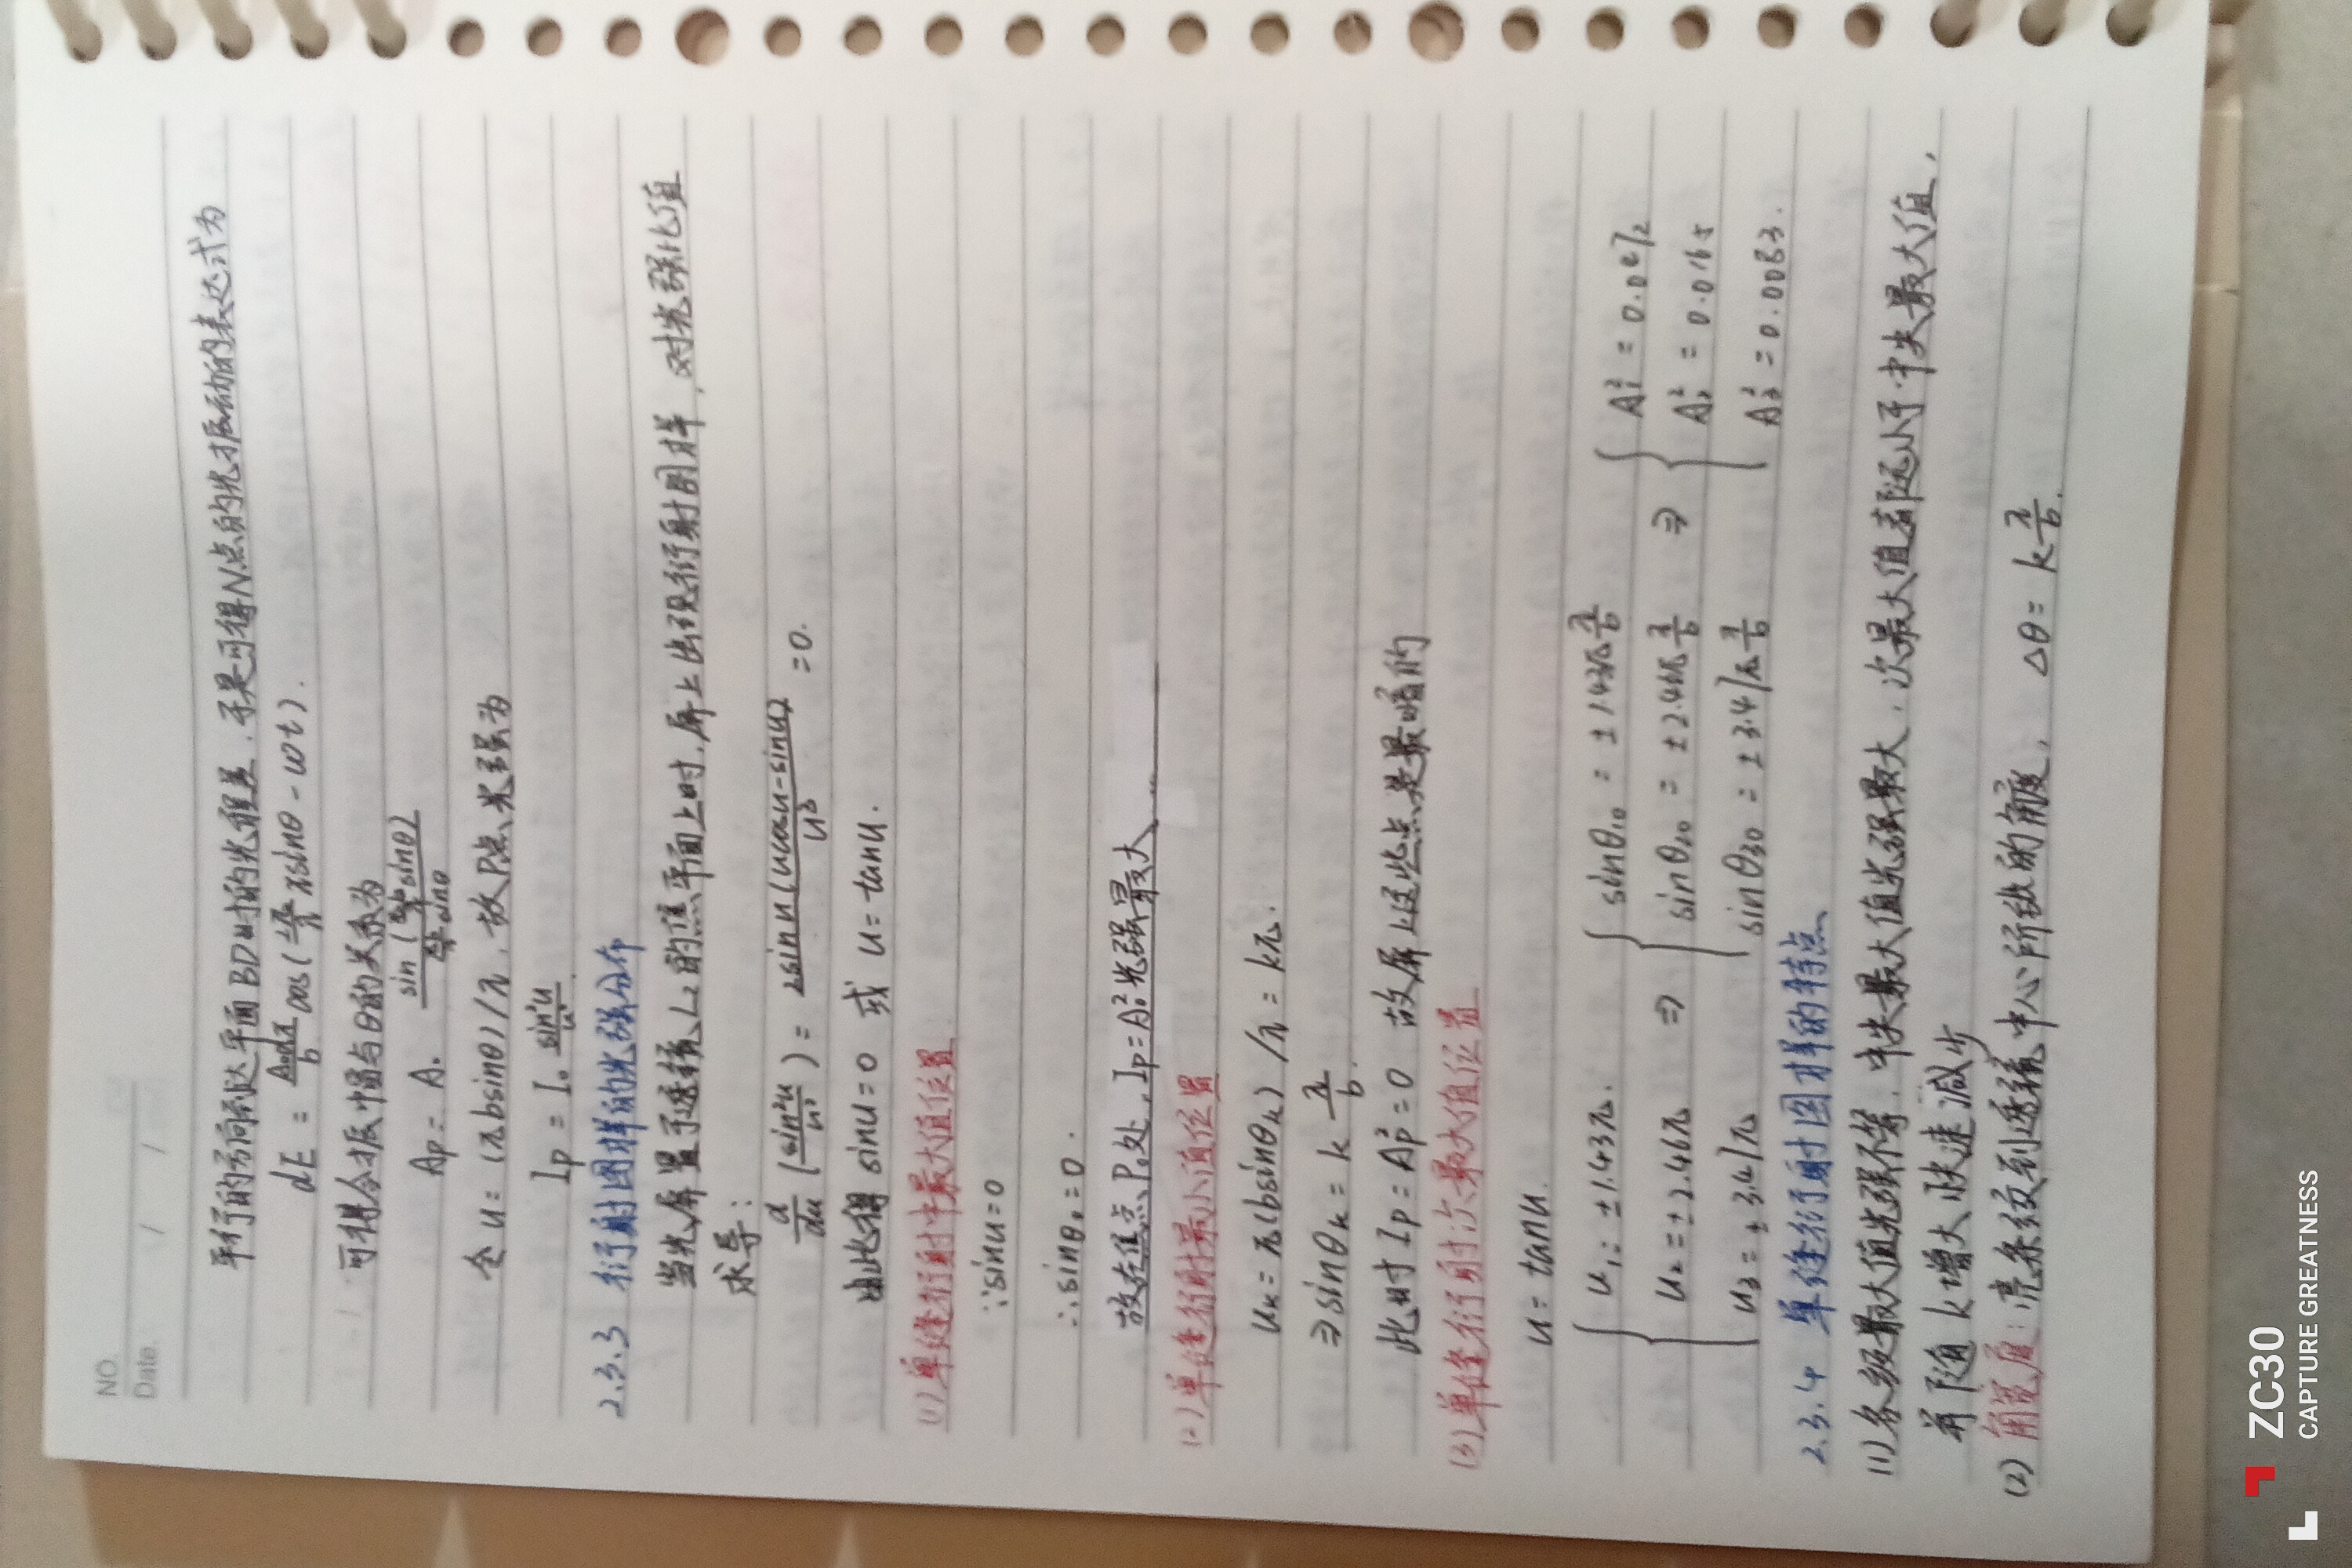 NO.
Date. / /
平行的方向到达平面BD时的光程差,于是可得N点的光振动的表达式为
dE = A₀dx/b cos(2π/λ xsinθ - wt).
可得合振幅与θ的关系为
Ap = A₀ sin(πb/λ sinθ)/(πb/λ sinθ)
令 u = (πbsinθ)/λ, 故P点光强为
Ip = I₀ sin²u/u².
2.3.3 衍射图样的光强分布
当光屏置于透镜L₂的焦平面上时,屏上出现衍射图样,对光强比值
求导:
d/du (sin²u/u²) = 2sinu(ucosu-sinu)/u³ = 0.
由此得 sinu=0 或 u=tanu.
(1)单缝衍射中最大值位置
∵ sinu=0
∴ sinθ₀=0.
故在焦点P₀处, Ip=A₀²光强最大
(2)单缝衍射最小值位置
uk = π(bsinθk)/λ = kπ.
⇒ sinθk = k λ/b.
此时 Ip = Ap² = 0 故屏上这些点是最暗的
(3)单缝衍射次最大值位置
u = tanu.
{ u₁ = ±1.43π. ⇒ { sinθ₁₀ = ±1.43 λ/b ⇒ { A₁² = 0.0472
u₂ = ±2.46π sinθ₂₀ = ±2.46 λ/b A₂² = 0.0165
u₃ = ±3.47π sinθ₃₀ = ±3.47 λ/b A₃² = 0.0083.
2.3.4 单缝衍射图样的特点
(1)各级最大值光强不等.中央最大值光强最大,次最大值都远小于中央最大值,
并随k增大快速减少
(2) 角宽度:亮条纹到透镜中心所张的角度, Δθ = k λ/b.
ZC30
CAPTURE GREATNESS